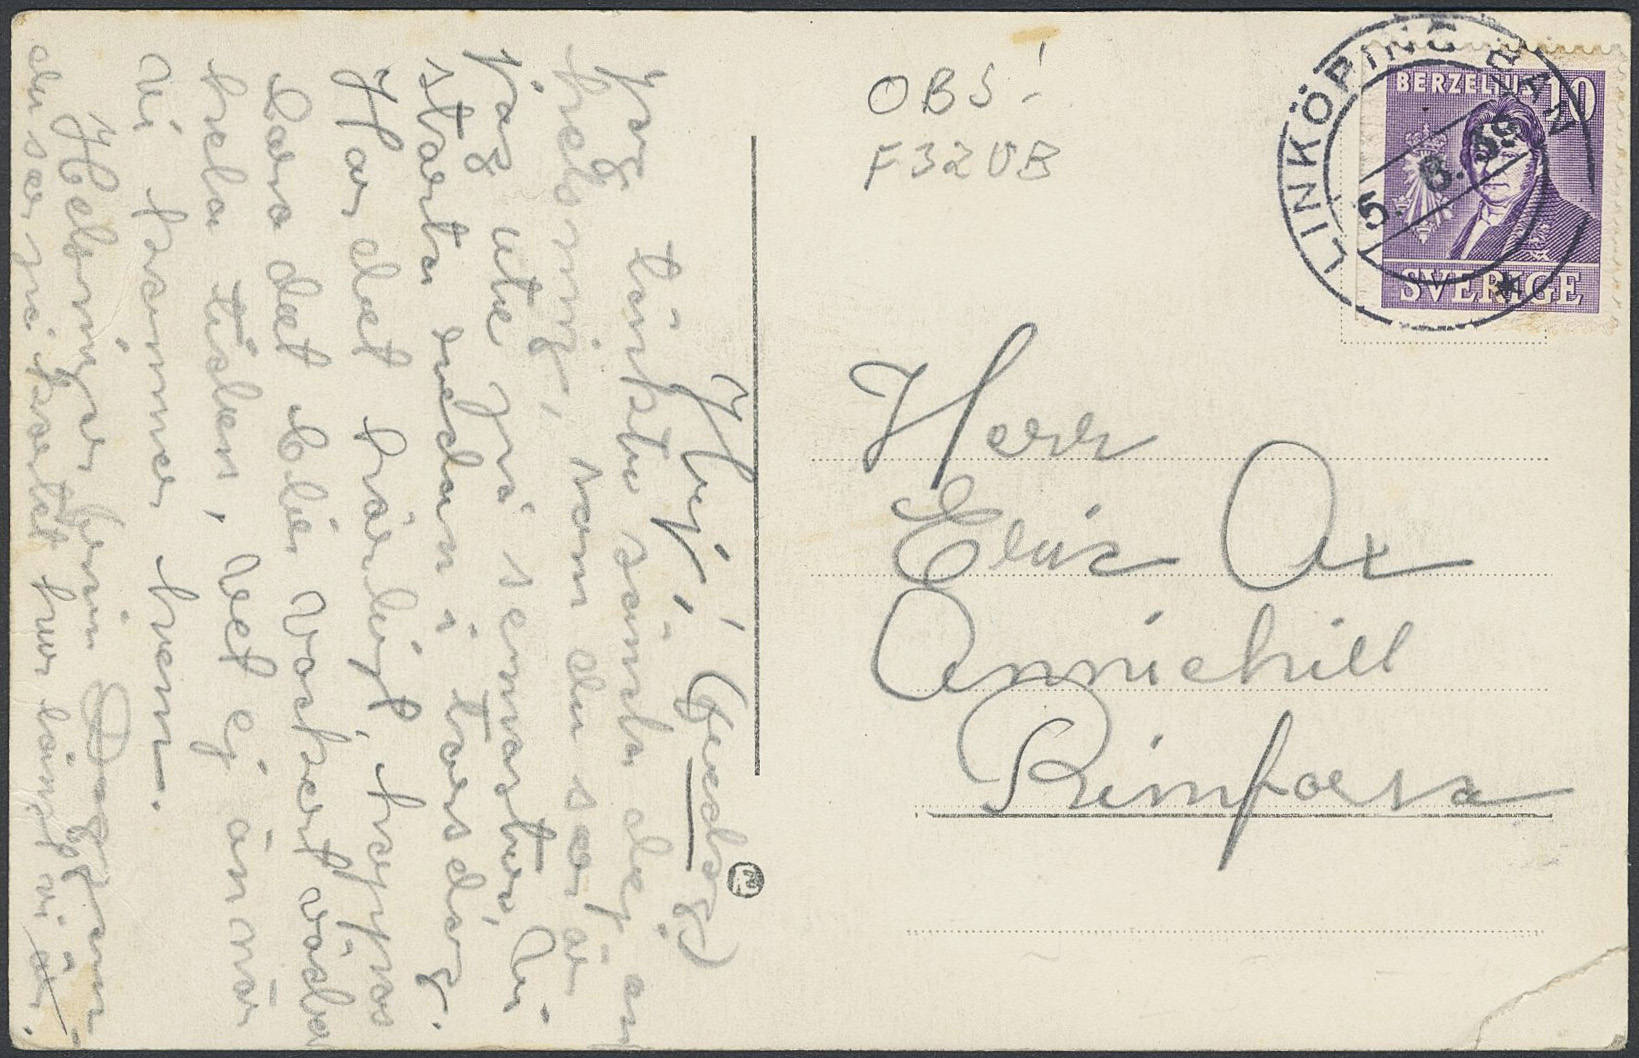 Hej! (Gedog)
Jag tänkte sända dej en
hälsning, som du ser är
jag ute på semester, Vi
starta redan i torsdag.
Har det härligt, hoppas
bara det blir vackert väder
hela tiden, Vet ej än när
vi kommer hem.
Hälsningar från Daggan
du ser på kortet hur långt vi är.
OBS!
F32UB
LINKÖPING BAN
5. 8. 39
BERZELIUS 10
SVERIGE
Herr
Eric Ax
Annichill
Rimforsa